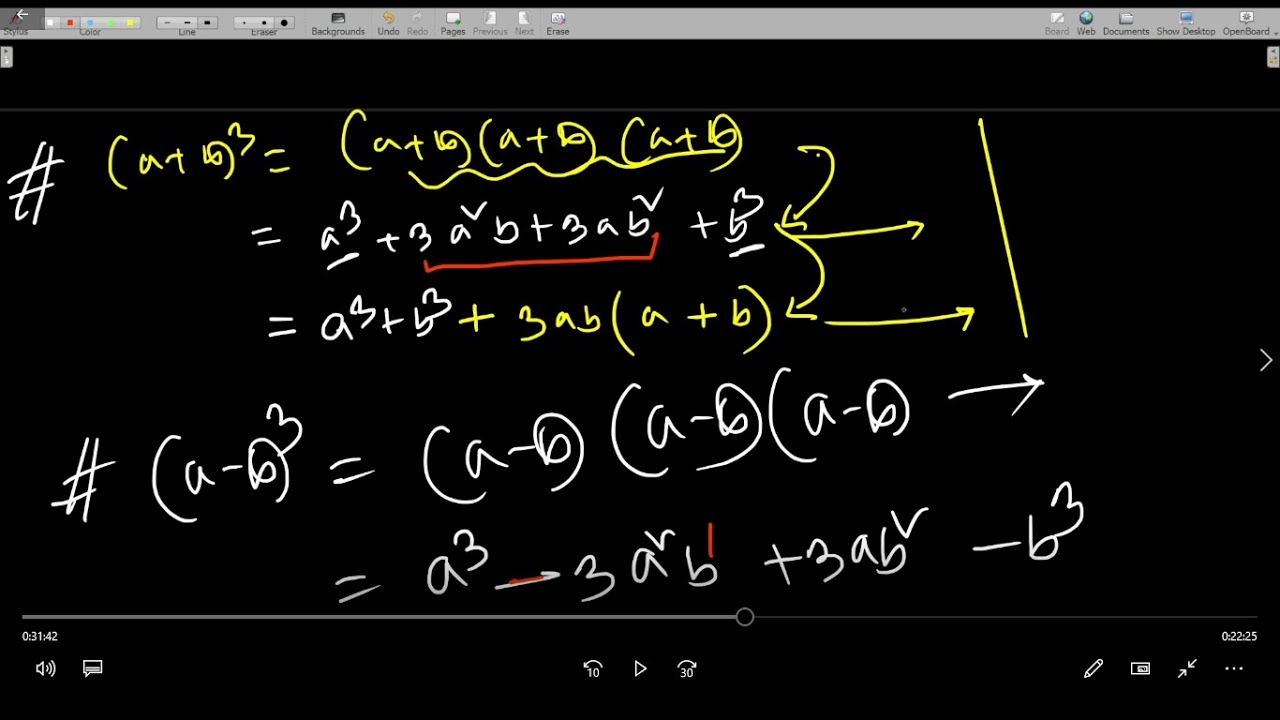 Stylus Color Line Eraser Backgrounds Undo Redo Pages Previous Next Erase Board Web Documents Show Desktop OpenBoard
# (a+b)³ = (a+b)(a+b)(a+b)
= a³ + 3a²b + 3ab² + b³
= a³ + b³ + 3ab(a + b)
# (a-b)³ = (a-b)(a-b)(a-b)
= a³ - 3a²b + 3ab² - b³
0:31:42 0:22:25
10 30